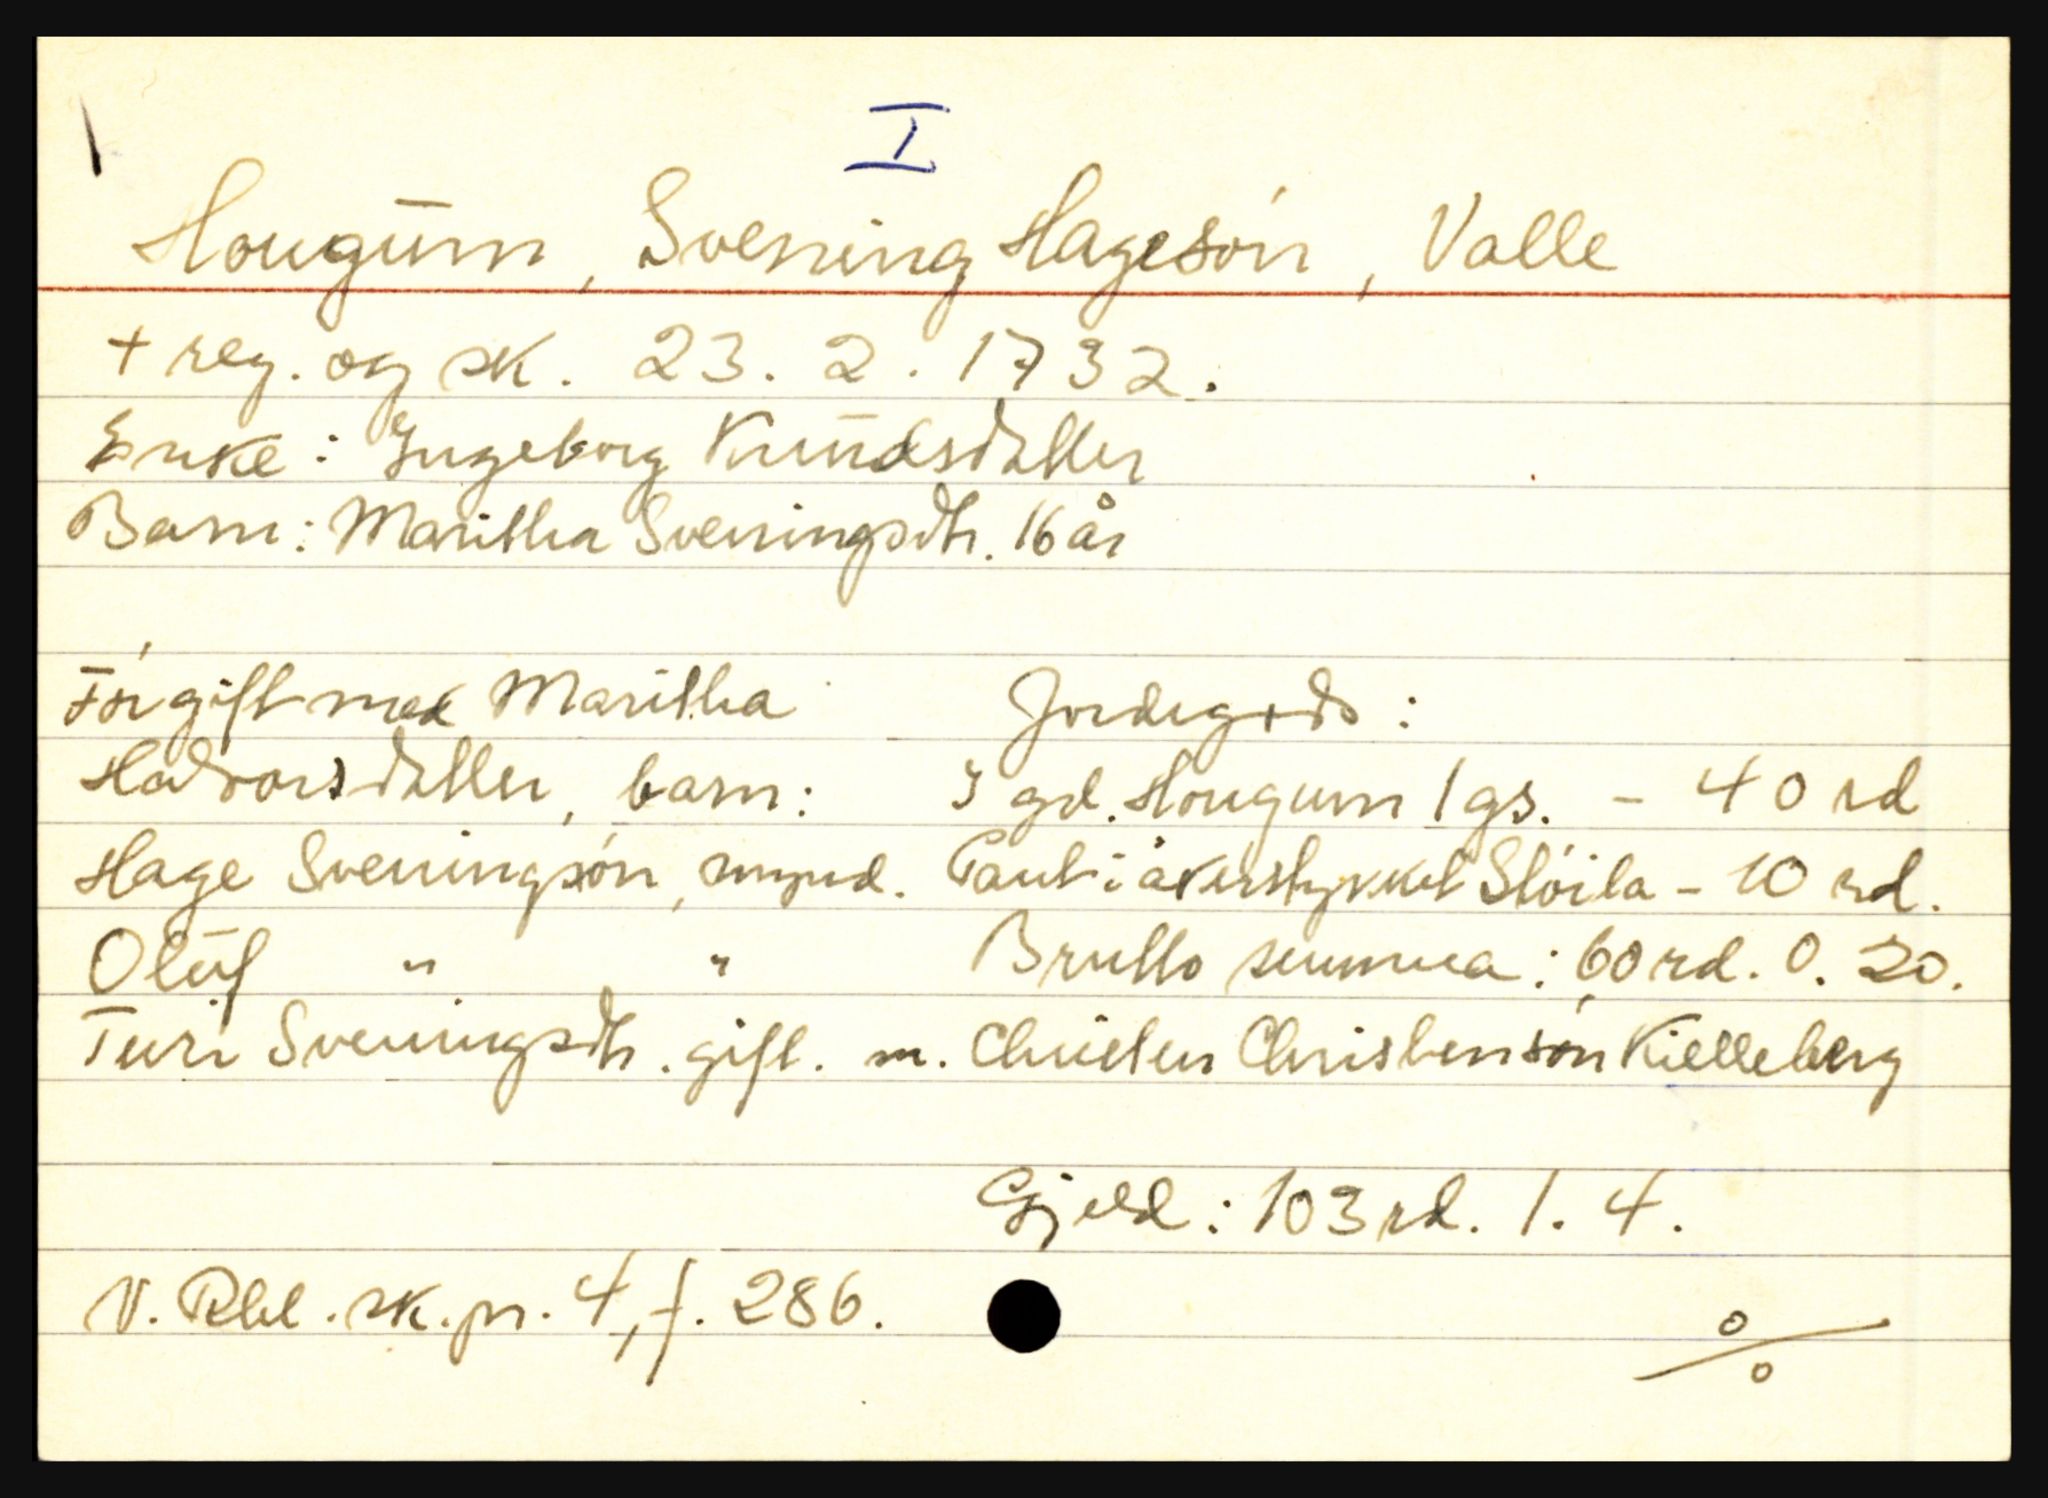 I
Hougum, Svening Hagesón, Valle
+ reg. og sk. 23. 2. 1732.
Enke: Ingeborg Knudsdatter
Barn: Maritha Sveningsdtr. 16 år
Fór gift med Maritha
Halvorsdatter, barn:
Hage Sveningsón, mynd.
Oluf " "
Jordegods:
I gd. Hougum 1 gs. - 40 rd
Pant i åkerstykket Stóila - 10 rd.
Brutto summa: 60 rd. 0. 20.
Turi Sveningsdtr. gift. m. Christen Christensón Kielleberg
Gjeld: 103 rd. 1. 4.
V. Rbl. sk. pr. 4, f. 286.
%